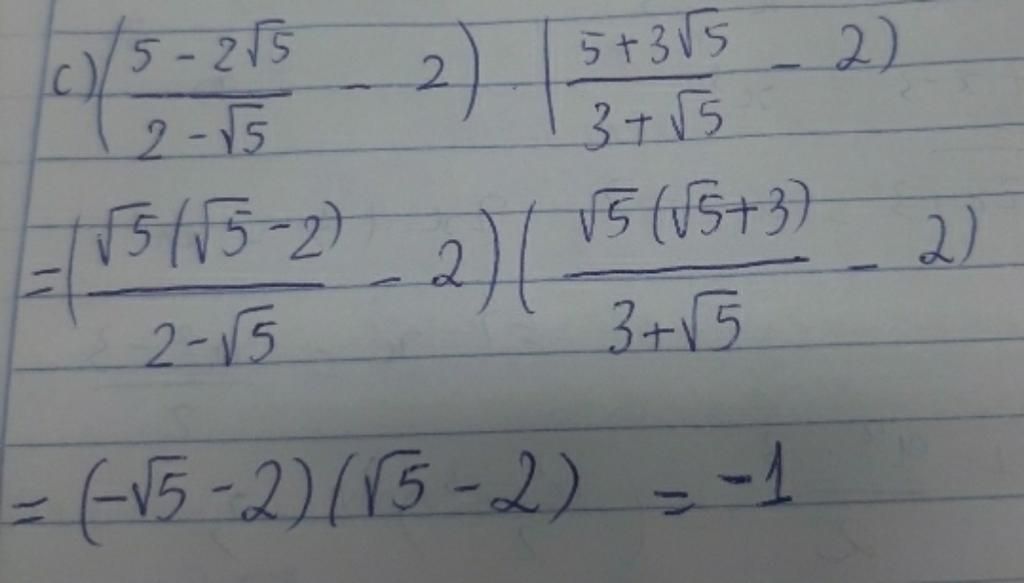 c) ( (5 - 2√5)/(2 - √5) - 2 ) . ( (5 + 3√5)/(3 + √5) - 2 )
= ( √5(√5 - 2)/(2 - √5) - 2 ) ( √5(√5 + 3)/(3 + √5) - 2 )
= (-√5 - 2)(√5 - 2) = -1